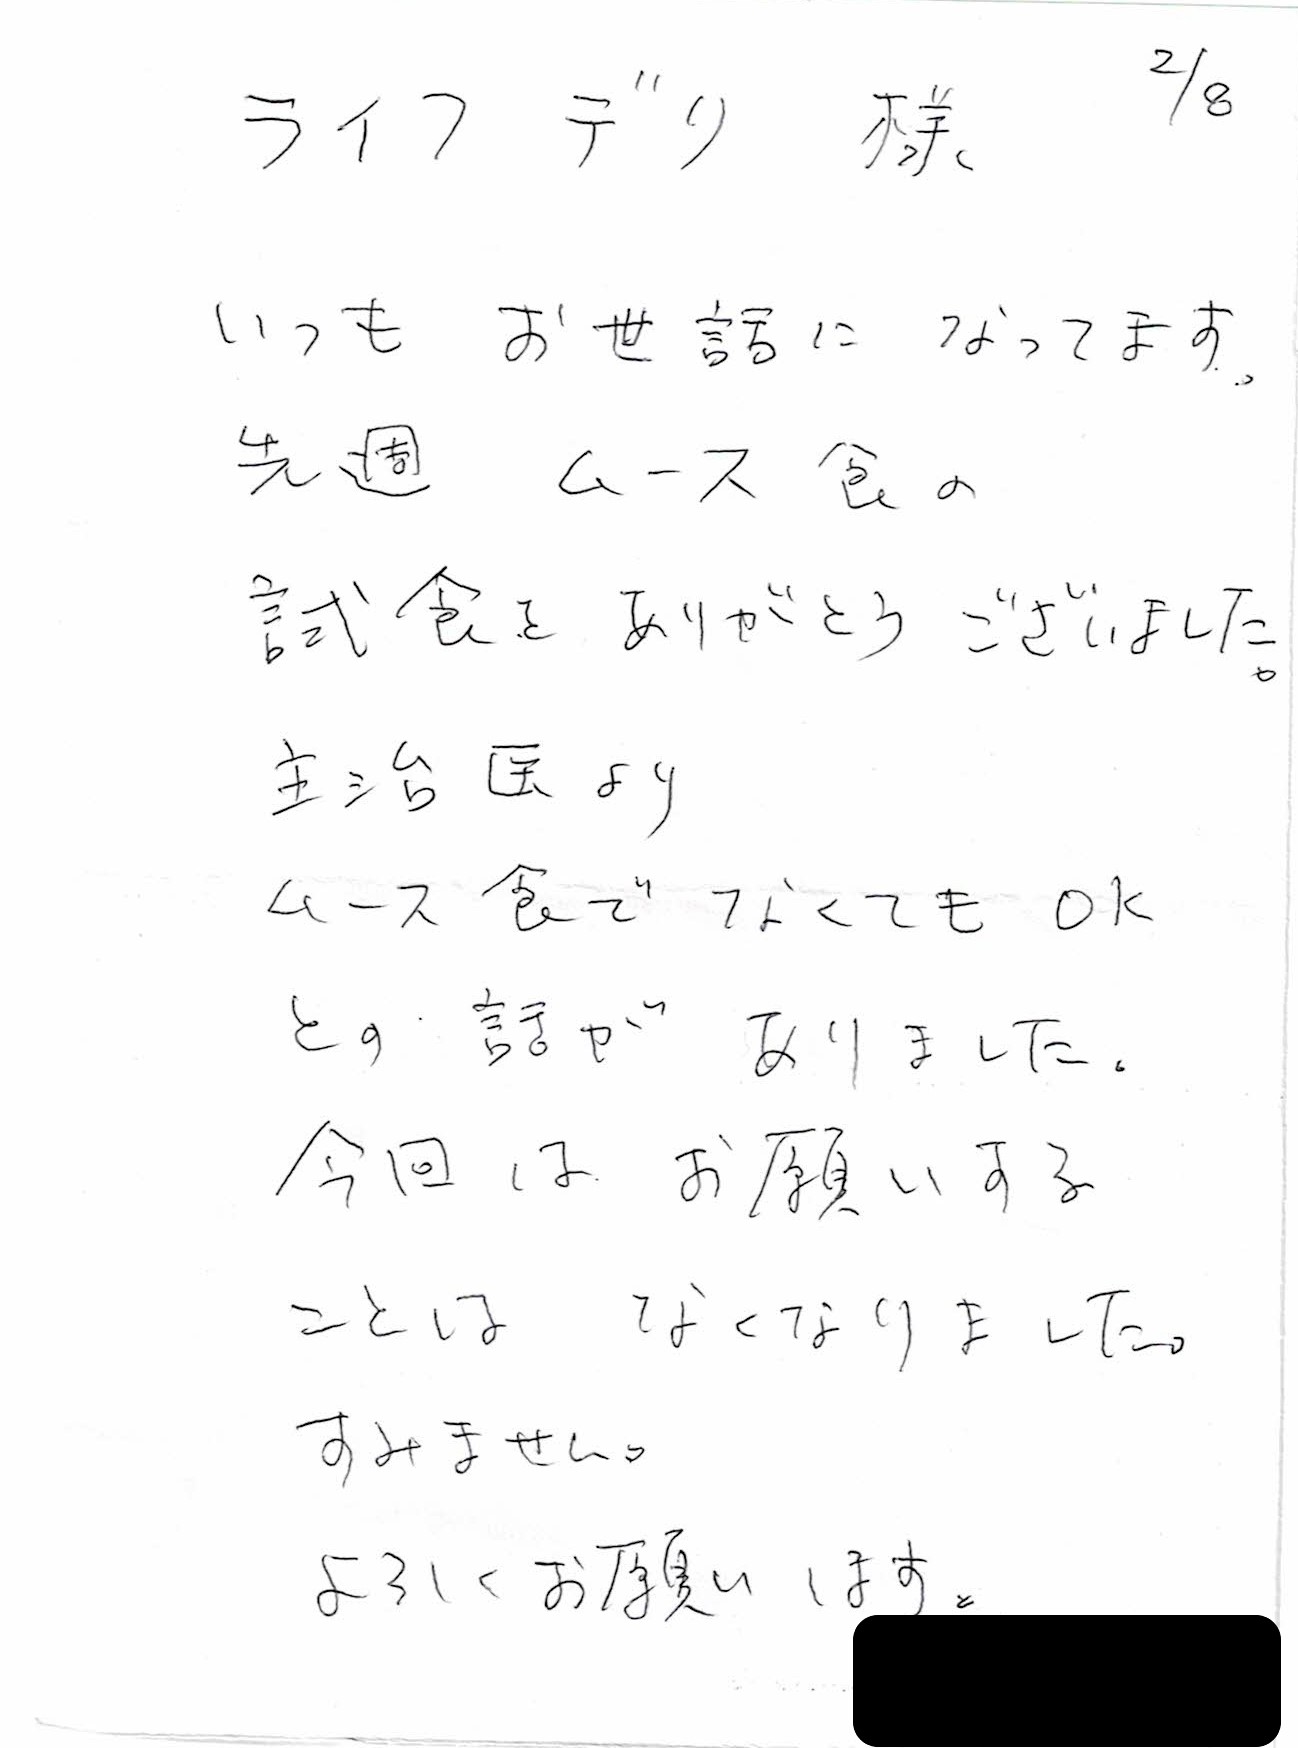 2/8
ライフ デリ 様
いつも お世話に なってます。
先週 ムース食の
試食を ありがとう ございました。
主治医より
ムース食で なくても OK
との 話が ありました。
今回は お願いする
ことは なくなりました。
すみません。
よろしくお願いします。